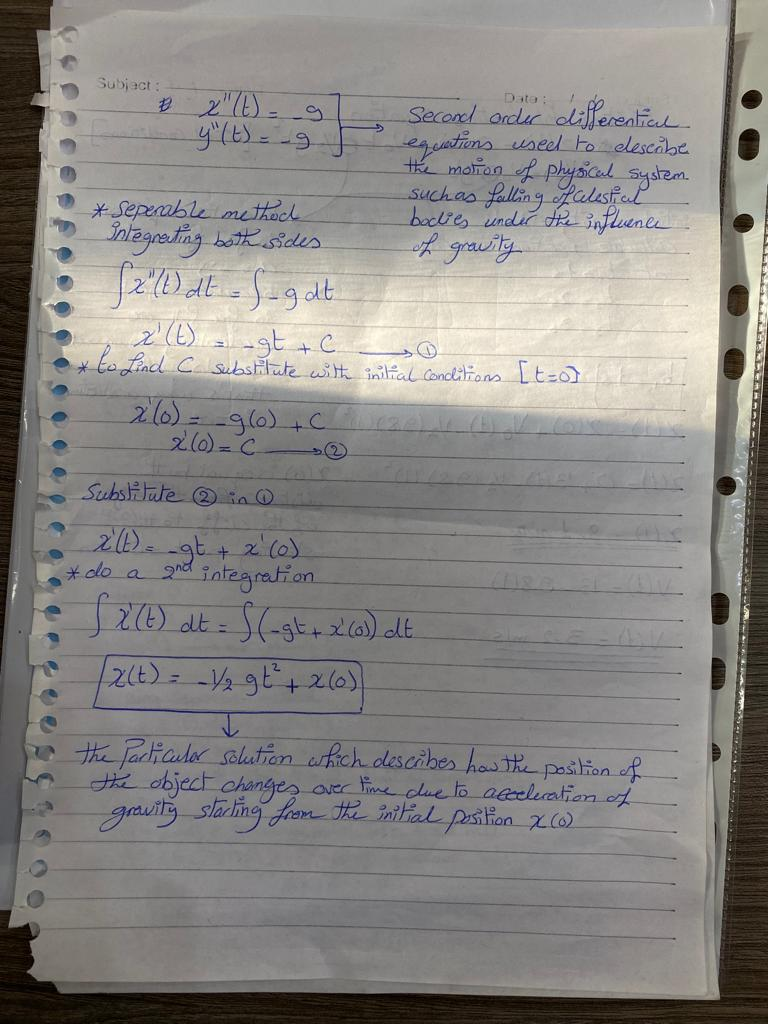 Subject :
Date : / /
x''(t) = -g
y''(t) = -g
Second order differential
equations used to describe
the motion of physical system
such as falling of celestial
bodies under the influence
of gravity
* seperable method
integrating both sides
∫x''(t) dt = ∫-g dt
x'(t) = -gt + C → ①
* to find C substitute with initial conditions [t=0]
x'(0) = -g(0) + C
x'(0) = C → ②
Substitute ② in ①
x'(t) = -gt + x'(0)
* do a 2nd integration
∫ x'(t) dt = ∫(-gt + x'(0)) dt
x(t) = -1/2 gt² + x(0)
the Particular solution which describes how the position of
the object changes over time due to acceleration of
gravity starting from the initial position x(0)